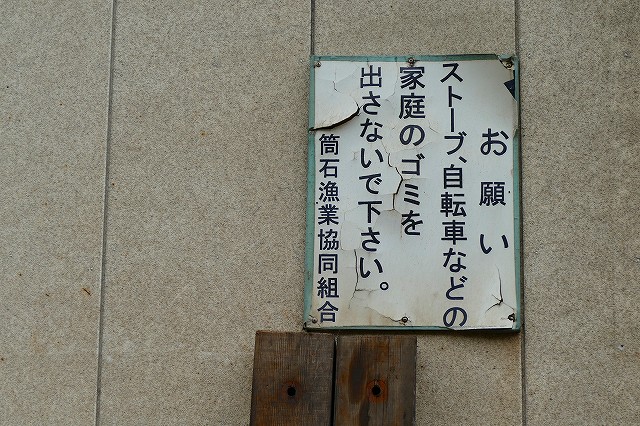 お願い
ストーブ、自転車などの
家庭のゴミを
出さないで下さい。
筒石漁業協同組合